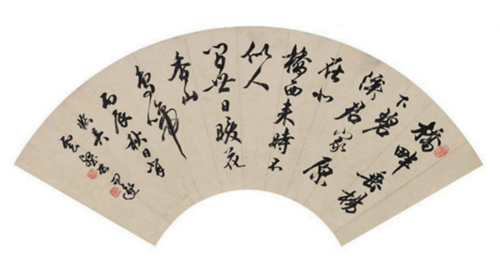 橋畔垂楊
下碧
溪君家原
在北
橋西來時不
似人
間世日暖花
香山
鳥啼
丙辰秋日